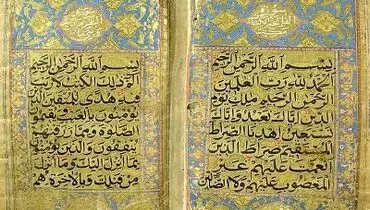 بسم الله الرحمن الرحيم
الحمد لله رب العلمين
الرحمن الرحيم ملك يوم
الدين اياك نعبد واياك
نستعين اهدنا الصراط
المستقيم صراط الذين
انعمت عليهم غير
المغضوب عليهم ولا الضالين
بسم الله الرحمن الرحيم
الم ذلك الكتب لا ريب
فيه هدى للمتقين الذين
يؤمنون بالغيب ويقيمون
الصلوة ومما رزقنهم
ينفقون والذين يؤمنون
بما انزل اليك وما انزل
من قبلك وبالاخرة هم